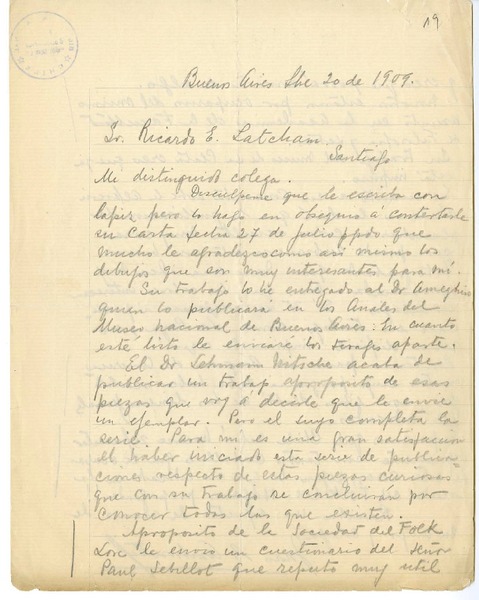 19
Buenos Aires Sbe 20 de 1909.
Sr. Ricardo E. Latcham
Santiago
Mi distinguido colega.
Disculpeme que le escriba con
lapiz pero lo hago en obsequio a contestarle
su Carta fecha 27 de Julio ppdo que
mucho le agradezco como asi mismo los
dibujos que son muy interesantes para mi.
Su trabajo lo he entregado al Dr Ameghino
quien lo publicará en los Anales del
Museo nacional de Buenos Aires: En cuanto
esté listo le enviaré los tirages aparte.
El Dr Lehmann Nitsche acaba de
publicar un trabajo aproposito de esas
piezas que voy a decirle que le envie
un ejemplar. Pero el suyo completa la
serie. Para mi es una gran satisfaccion
el haber iniciado esta serie de publica
ciones respecto de estas piezas curiosas
que con su trabajo se concluirán por
conocer todas las que existen.
Aproposito de la Sociedad del Folk
Lore le envio un cuestionario del Señor
Paul Sebillot que reputo muy util